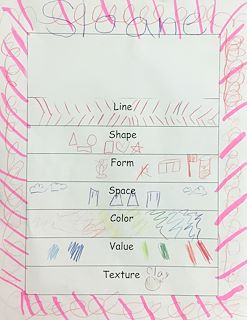 Sloane
Line
Shape
Form
Space
Color
Value
Texture Clay